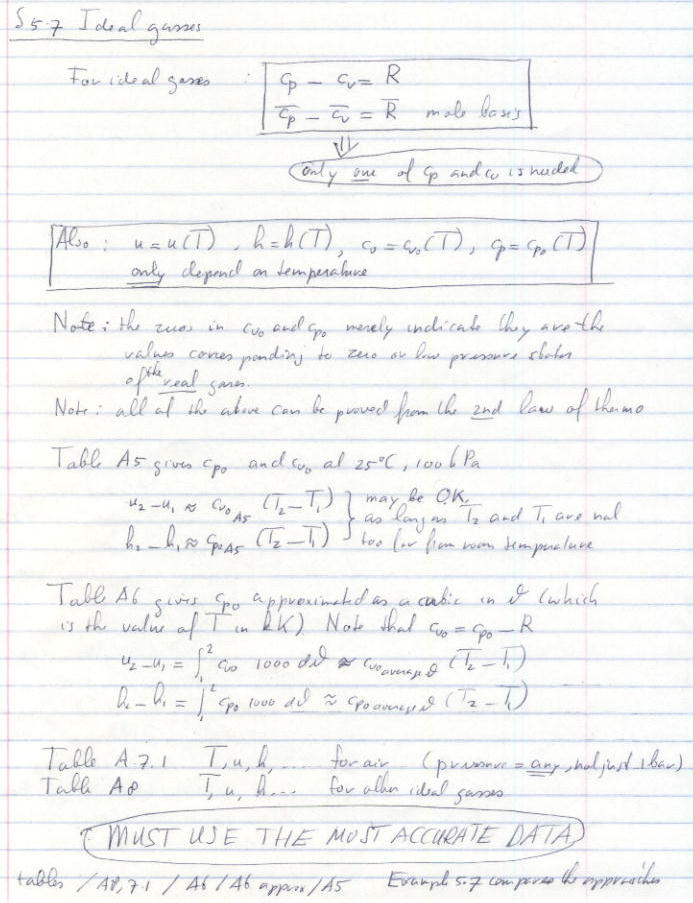 §5.7 Ideal gasses
For ideal gasses : cp - cv = R
c̄p - c̄v = R̄ mole basis
⇓
Only one of cp and cv is needed
Also : u = u(T), h = h(T), cv = cv₀(T), cp = cp₀(T)
only depend on temperature
Note: the zeros in cv₀ and cp₀ merely indicate they are the
values corresponding to zero or low pressure states
of the real gasses.
Note: all of the above can be proved from the 2nd law of thermo
Table A5 gives cp₀ and cv₀ at 25°C, 100 kPa
u₂-u₁ ≈ cv₀ A5 (T₂-T₁) } may be OK.
as long as T₂ and T₁ are not
h₂-h₁ ≈ cp₀ A5 (T₂-T₁) too far from room temperature
Table A6 gives cp₀ approximated as a cubic in ϑ (which
is the value of T in kK) Note that cv₀ = cp₀ - R
u₂-u₁ = ∫₁² cv₀ 1000 dϑ ≈ cv₀ average ϑ (T₂-T₁)
h₂-h₁ = ∫₁² cp₀ 1000 dϑ ≈ cp₀ average ϑ (T₂-T₁)
Table A.7.1 T, u, h, .... for air (pressure = any, not just 1 bar)
Table A8 T, u, h... for other ideal gasses
MUST USE THE MOST ACCURATE DATA
tables / A8, 7.1 / A6 / A6 approx / A5 Example 5.7 compares the approaches